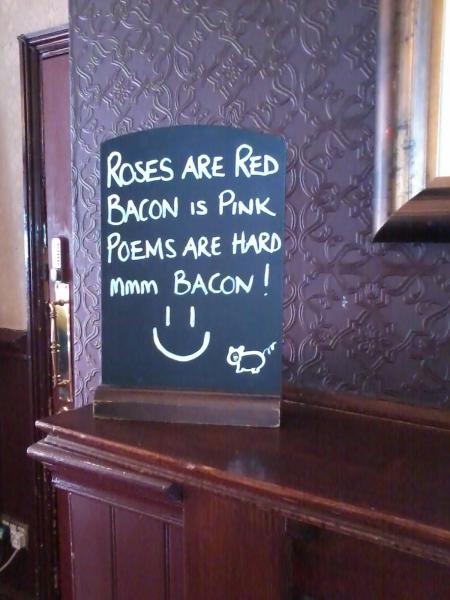 ROSES ARE RED
BACON IS PINK
POEMS ARE HARD
mmm BACON!